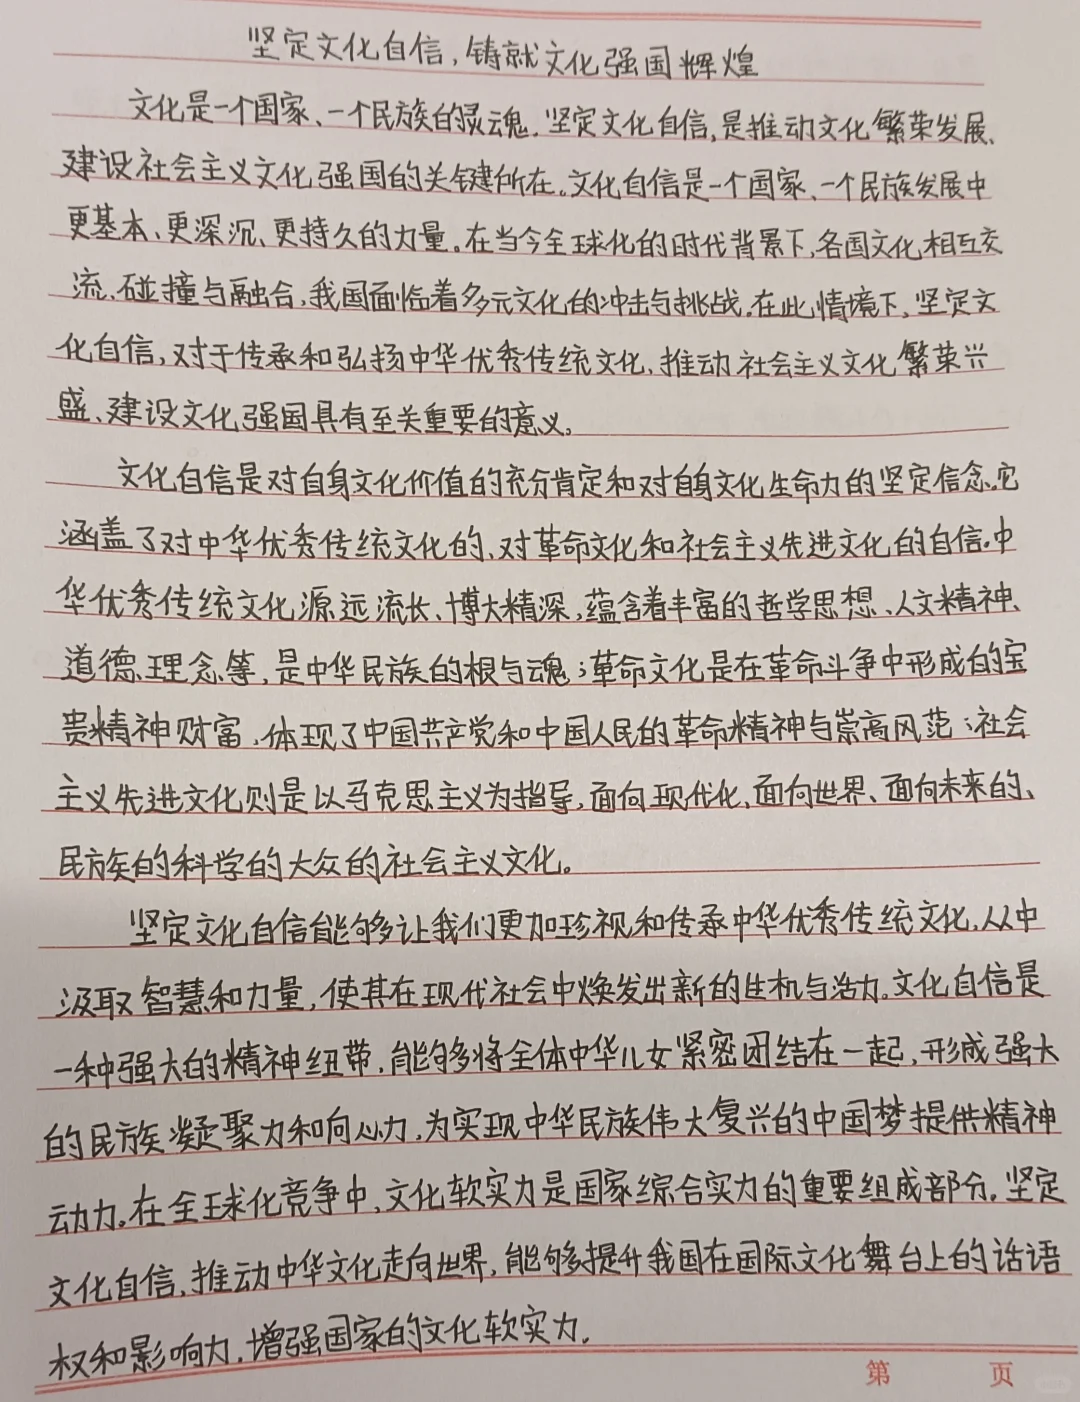 坚定文化自信,铸就文化强国辉煌
文化是一个国家、一个民族的灵魂.坚定文化自信,是推动文化繁荣发展、
建设社会主义文化强国的关键所在。文化自信是一个国家、一个民族发展中
更基本、更深沉、更持久的力量。在当今全球化的时代背景下,各国文化相互交
流、碰撞与融合,我国面临着多元文化的冲击与挑战。在此情境下,坚定文
化自信,对于传承和弘扬中华优秀传统文化、推动社会主义文化繁荣兴
盛、建设文化强国具有至关重要的意义。
文化自信是对自身文化价值的充分肯定和对自身文化生命力的坚定信念.它
涵盖了对中华优秀传统文化的、对革命文化和社会主义先进文化的自信.中
华优秀传统文化源远流长、博大精深,蕴含着丰富的哲学思想、人文精神、
道德理念等,是中华民族的根与魂;革命文化是在革命斗争中形成的宝
贵精神财富,体现了中国共产党和中国人民的革命精神与崇高风范;社会
主义先进文化则是以马克思主义为指导,面向现代化、面向世界、面向未来的、
民族的科学的大众的社会主义文化。
坚定文化自信能够让我们更加珍视和传承中华优秀传统文化,从中
汲取智慧和力量,使其在现代社会中焕发出新的生机与活力.文化自信是
一种强大的精神纽带,能够将全体中华儿女紧密团结在一起,形成强大
的民族凝聚力和向心力,为实现中华民族伟大复兴的中国梦提供精神
动力。在全球化竞争中,文化软实力是国家综合实力的重要组成部分。坚定
文化自信,推动中华文化走向世界,能够提升我国在国际文化舞台上的话语
权和影响力,增强国家的文化软实力.
第 页